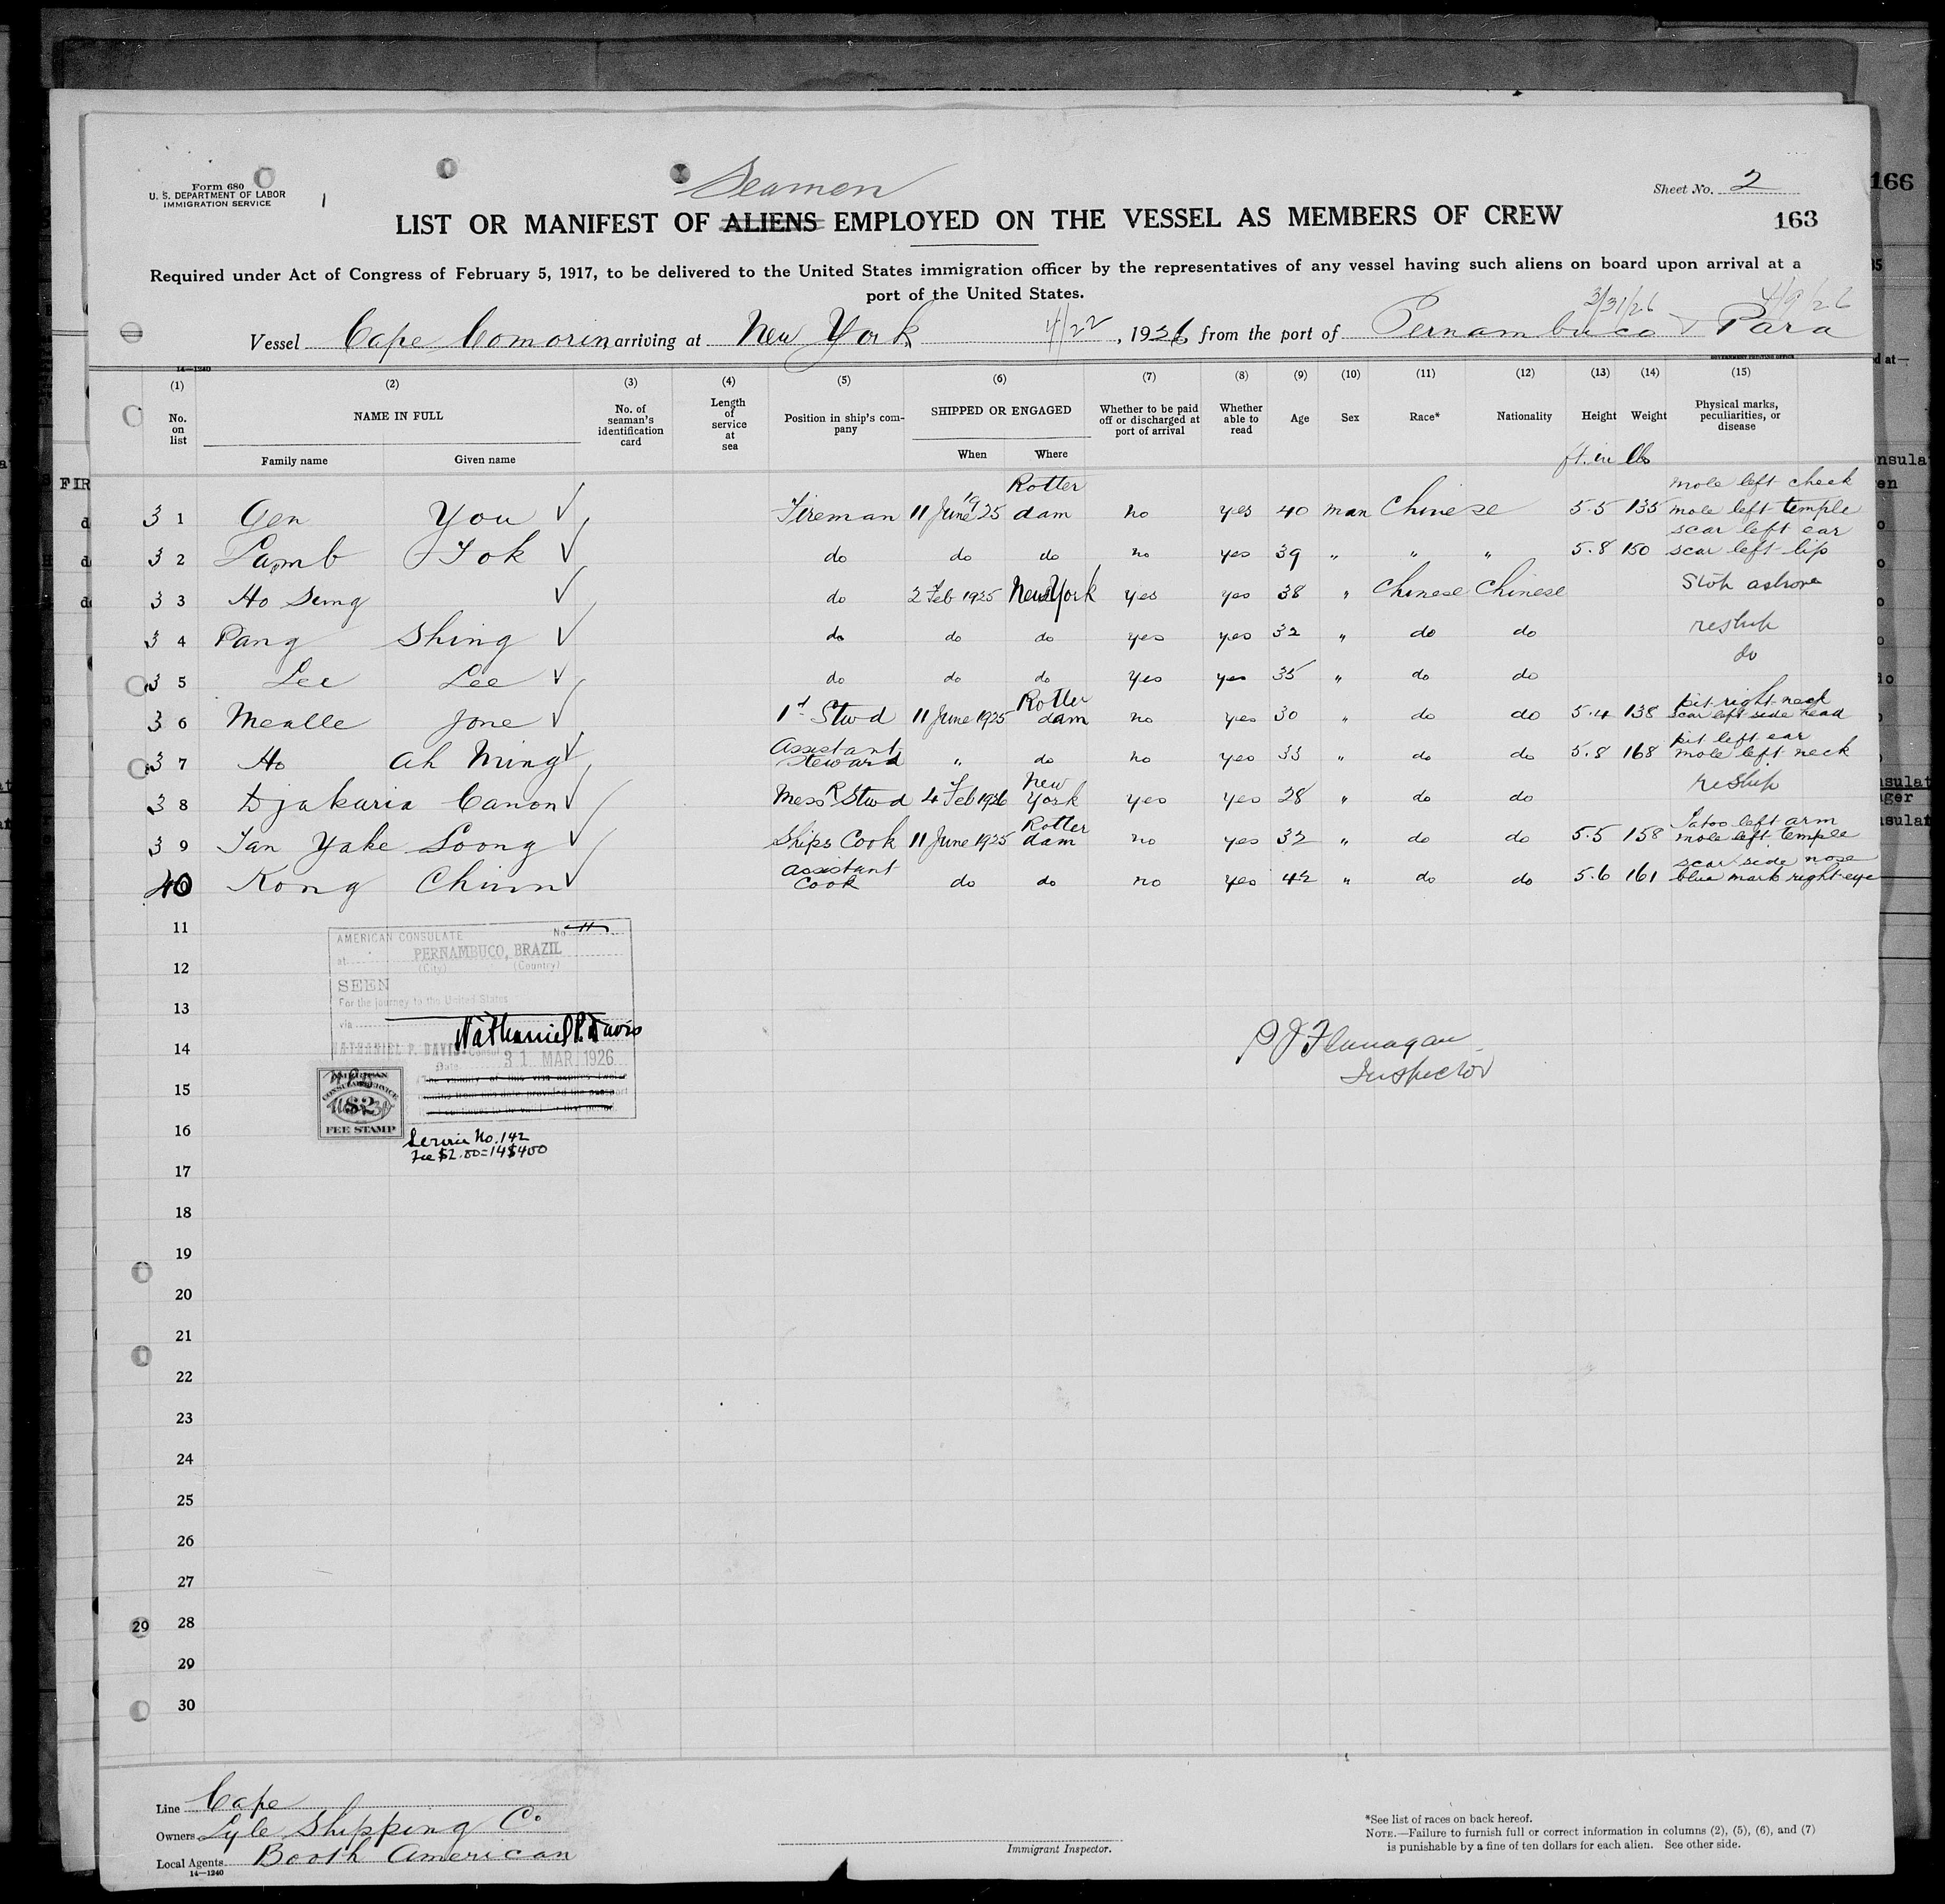 Form 680
U. S. DEPARTMENT OF LABOR
IMMIGRATION SERVICE
1
Seamen
Sheet No. 2
166
LIST OR MANIFEST OF ALIENS EMPLOYED ON THE VESSEL AS MEMBERS OF CREW
163
Required under Act of Congress of February 5, 1917, to be delivered to the United States immigration officer by the representatives of any vessel having such aliens on board upon arrival at a
port of the United States.
3/31/26 4/9/26
Vessel Cape Comorin, arriving at New York 4/22, 1926 from the port of Pernambuco & Para
14—1240
(1) (2) (3) (4) (5) (6) (7) (8) (9) (10) (11) (12) (13) (14) (15)
No. on list NAME IN FULL No. of seaman's identification card Length of service at sea Position in ship's company SHIPPED OR ENGAGED Whether to be paid off or discharged at port of arrival Whether able to read Age Sex Race* Nationality Height Weight Physical marks, peculiarities, or disease
Family name Given name When Where ft. in lbs
3 1 Gen You Fireman 11 June 1925 Rotterdam no yes 40 man Chinese 5.5 135 mole left cheek mole left temple
3 2 Lamb Fok do do do no yes 39 " " " 5.8 150 scar left ear scar left lip
3 3 Ho Seng do 2 Feb 1925 New York yes yes 38 " Chinese Chinese
3 4 Pang Shing do do do yes yes 32 " do do reship
3 5 Lee Lee do do do yes yes 35 " do do do
3 6 Mealle Jone 1st Stwd 11 June 1925 Rotterdam no yes 30 " do do 5.4 138 pit right neck scar left side head
3 7 Ho Ah Ming Assistant Steward " do no yes 33 " do do 5.8 168 pit left ear mole left neck
3 8 Djakaria Canon Mess R Stwd 4 Feb 1926 New York yes yes 28 " do do reship
3 9 Tan Yake Loong Ships Cook 11 June 1925 Rotterdam no yes 32 " do do 5.5 158 Tatoo left arm mole left temple
40 Kong Chinn Assistant Cook do do no yes 42 " do do 5.6 161 scar side nose blue mark right eye
11
12
13
14
15
16
17
18
19
20
21
22
23
24
25
26
27
28
29
30
AMERICAN CONSULATE No.
at PERNAMBUCO, BRAZIL
(City) (Country)
SEEN
For the journey to the United States
via
Nathaniel P. Davis
NATHANIEL P. DAVIS Consul
Date 31 MAR 1926
AMERICAN
CONSULAR SERVICE
$2
FEE STAMP
Service No. 142
Fee $2.00=14$400
P J Flanagan
Inspector
29
Line Cape
Owners Lyle Shipping Co
Local Agents Booth American
14—1240
Immigrant Inspector.
*See list of races on back hereof.
NOTE.—Failure to furnish full or correct information in columns (2), (5), (6), and (7)
is punishable by a fine of ten dollars for each alien. See other side.